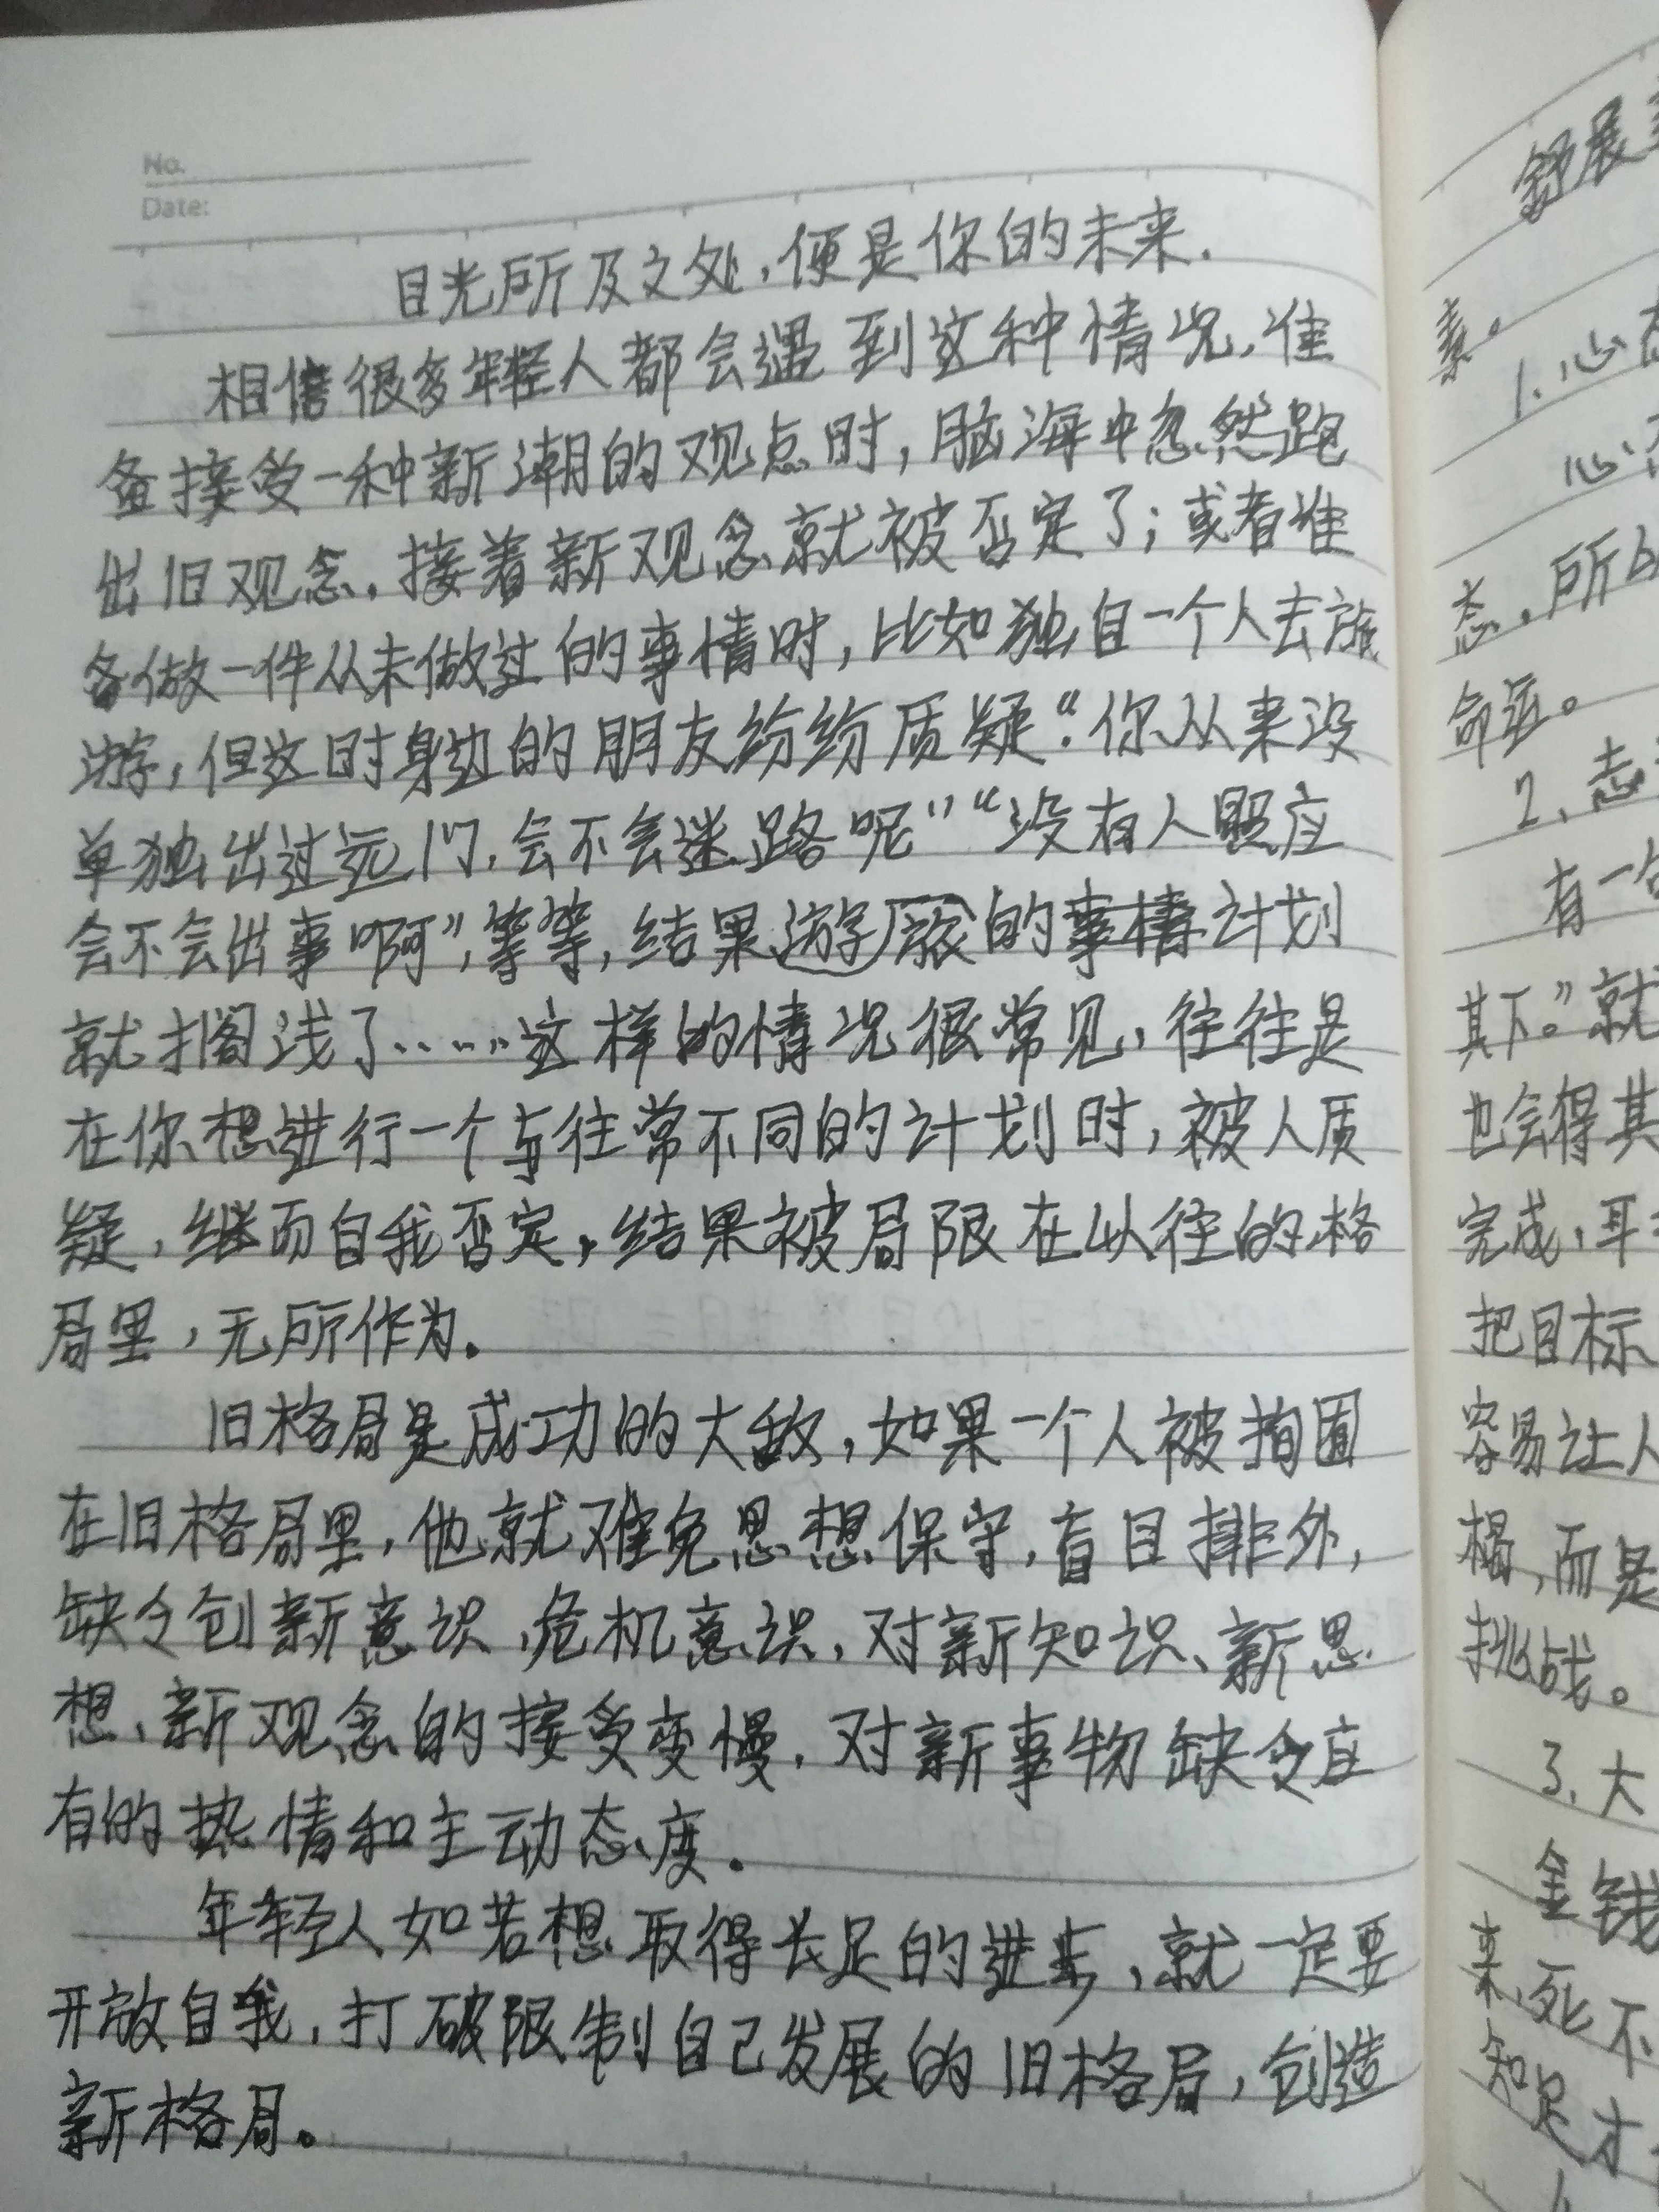 No.
Date:
目光所及之处,便是你的未来.
相信很多年轻人都会遇到这种情况,准
备接受一种新潮的观点时,脑海中忽然跑
出旧观念,接着新观念就被否定了;或者准
备做一件从未做过的事情时,比如独自一个人去旅
游,但这时身边的朋友纷纷质疑“你从来没
单独出过远门,会不会迷路呢”“没有人照应
会不会出事啊”,等等,结果游旅的事情计划
就搁浅了……这样的情况很常见,往往是
在你想进行一个与往常不同的计划时,被人质
疑,继而自我否定,结果被局限在以往的格
局里,无所作为。
旧格局是成功的大敌,如果一个人被拘囿
在旧格局里,他就难免思想保守,盲目排外,
缺令创新意识,危机意识,对新知识、新思
想、新观念的接受变慢,对新事物缺令应
有的热情和主动态度.
年轻人如若想取得长足的进步,就一定要
开放自我,打破限制自己发展的旧格局,创造
新格局。
舒展
素。
1.心态
心
态,所
命运。
2、志
有一句
其下。”就
也会得其
完成,耳
把目标
容易让人
榻,而是
挑战。
3、大
金钱
来,死不
知足才